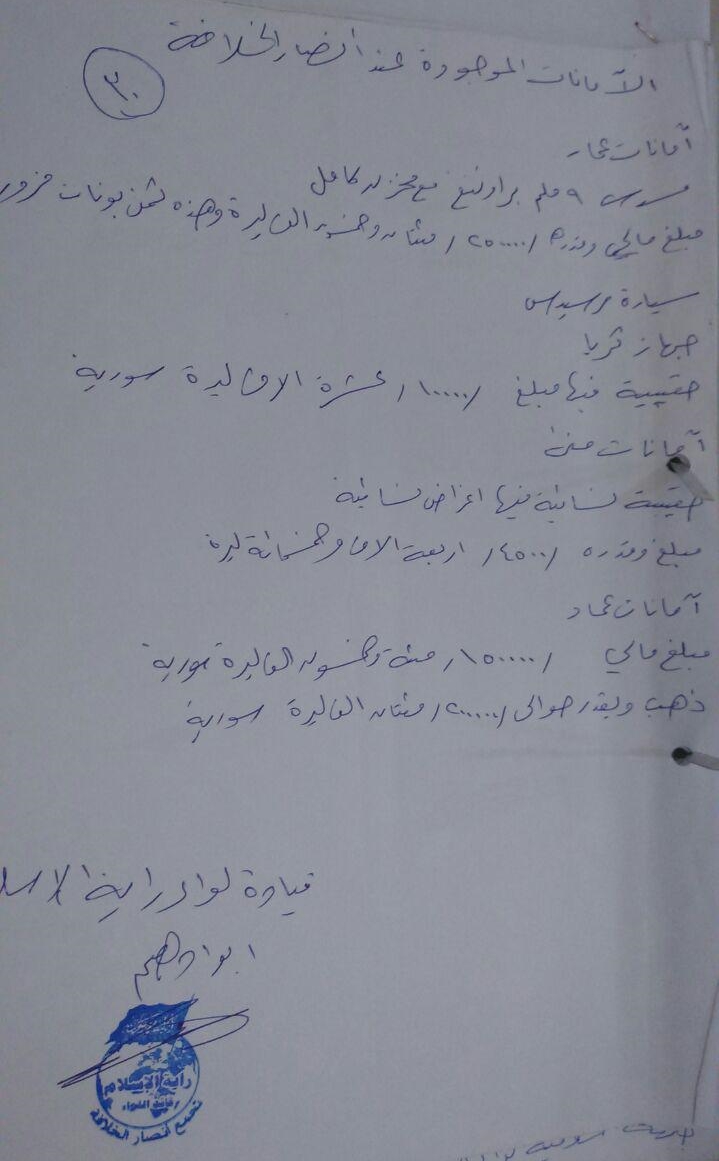 الآمانات الموجودة عند انصار الخلافة
٣٠
آمانات عمار
مسدس ٩ ملم براونينغ مع مخزن كامل
مبلغ مالي وقدره /٢٥٠٠٠٠/ مئتان وخمسون الف ليرة وهذه ثمن بونات مزور
سيارة مرسيدس
جهاز ثريا
حقيبة فيها مبلغ /١٠٠٠٠/ عشرة الاف ليرة سورية
آمانات منى
حقيبة نسائية فيها اغراض نسائية
مبلغ وقدره /٤٥٠٠/ اربعة الاف وخمسمائة ليرة
آمانات عماد
مبلغ مالي /١٥٠٠٠٠/ مئة وخمسون الف ليرة سورية
ذهب ويقدر حوالي /٢٠٠٠٠٠/ مئتان الف ليرة سورية
قيادة لواء راية الاسلا
ابو ادهم
راية الإسلام
قيادة اللواء
تجمع انصار الخلافة